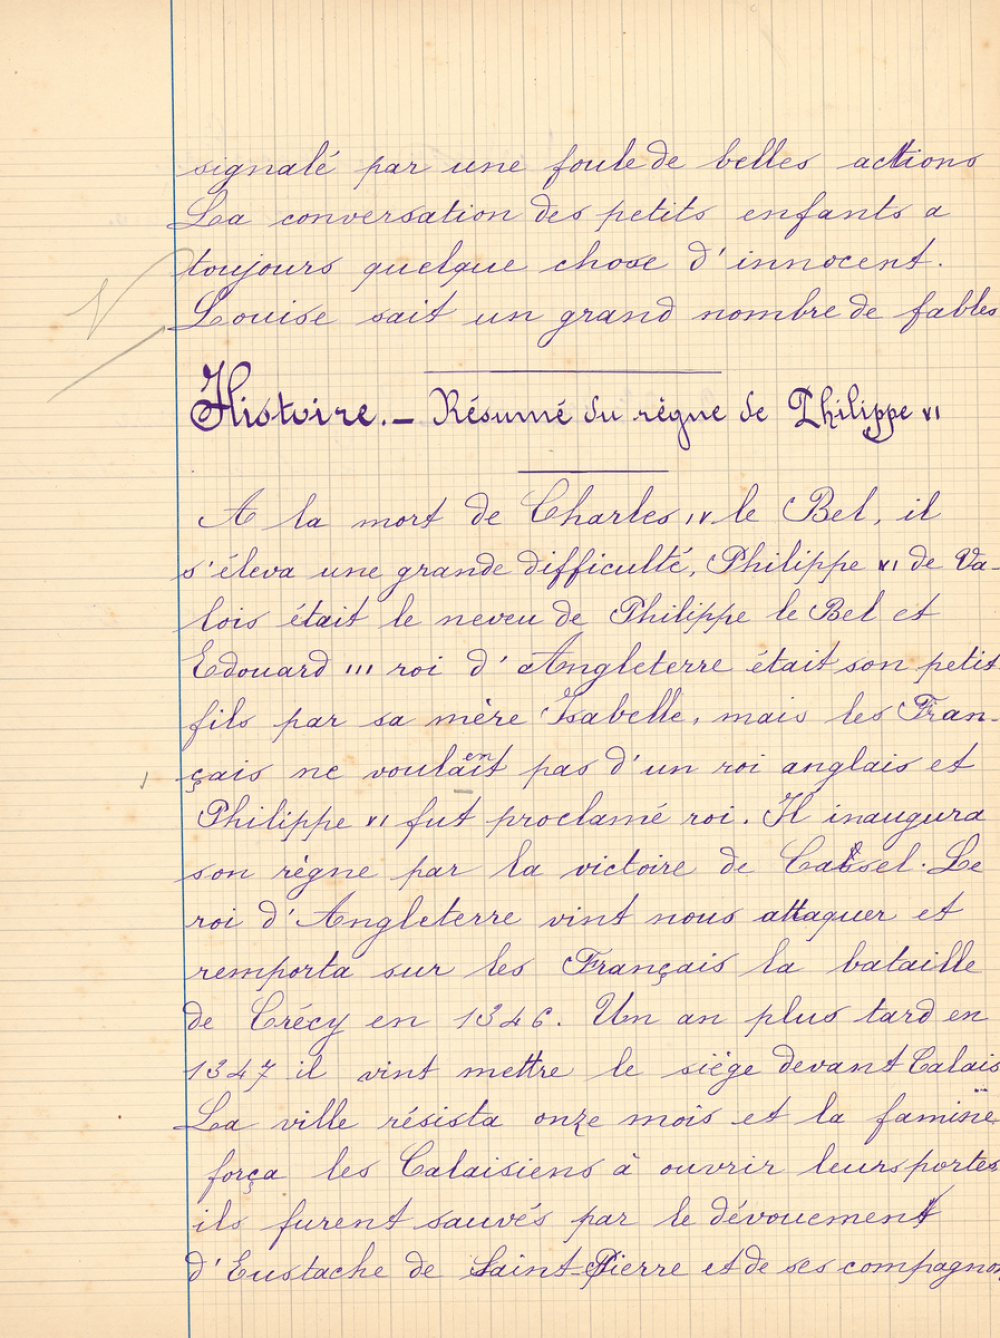 signalé par une foule de belles actions
La conversation des petits enfants a
toujours quelque chose d'innocent.
Louise sait un grand nombre de fables
Histoire. – Résumé du règne de Philippe VI
A la mort de Charles IV le Bel, il
s'éleva une grande difficulté, Philippe VI de Va-
lois était le neveu de Philippe le Bel et
Edouard III roi d'Angleterre était son petit
fils par sa mère Isabelle, mais les Fran-
çais ne voulaient pas d'un roi anglais et
Philippe VI fut proclamé roi. Il inaugura
son règne par la victoire de Cassel. Le
roi d'Angleterre vint nous attaquer et
remporta sur les Français la bataille
de Crécy en 1346. Un an plus tard en
1347 il vint mettre le siège devant Calais
La ville résista onze mois et la famine
força les Calaisiens à ouvrir leurs portes
ils furent sauvés par le dévouement
d'Eustache de Saint-Pierre et de ses compagnons